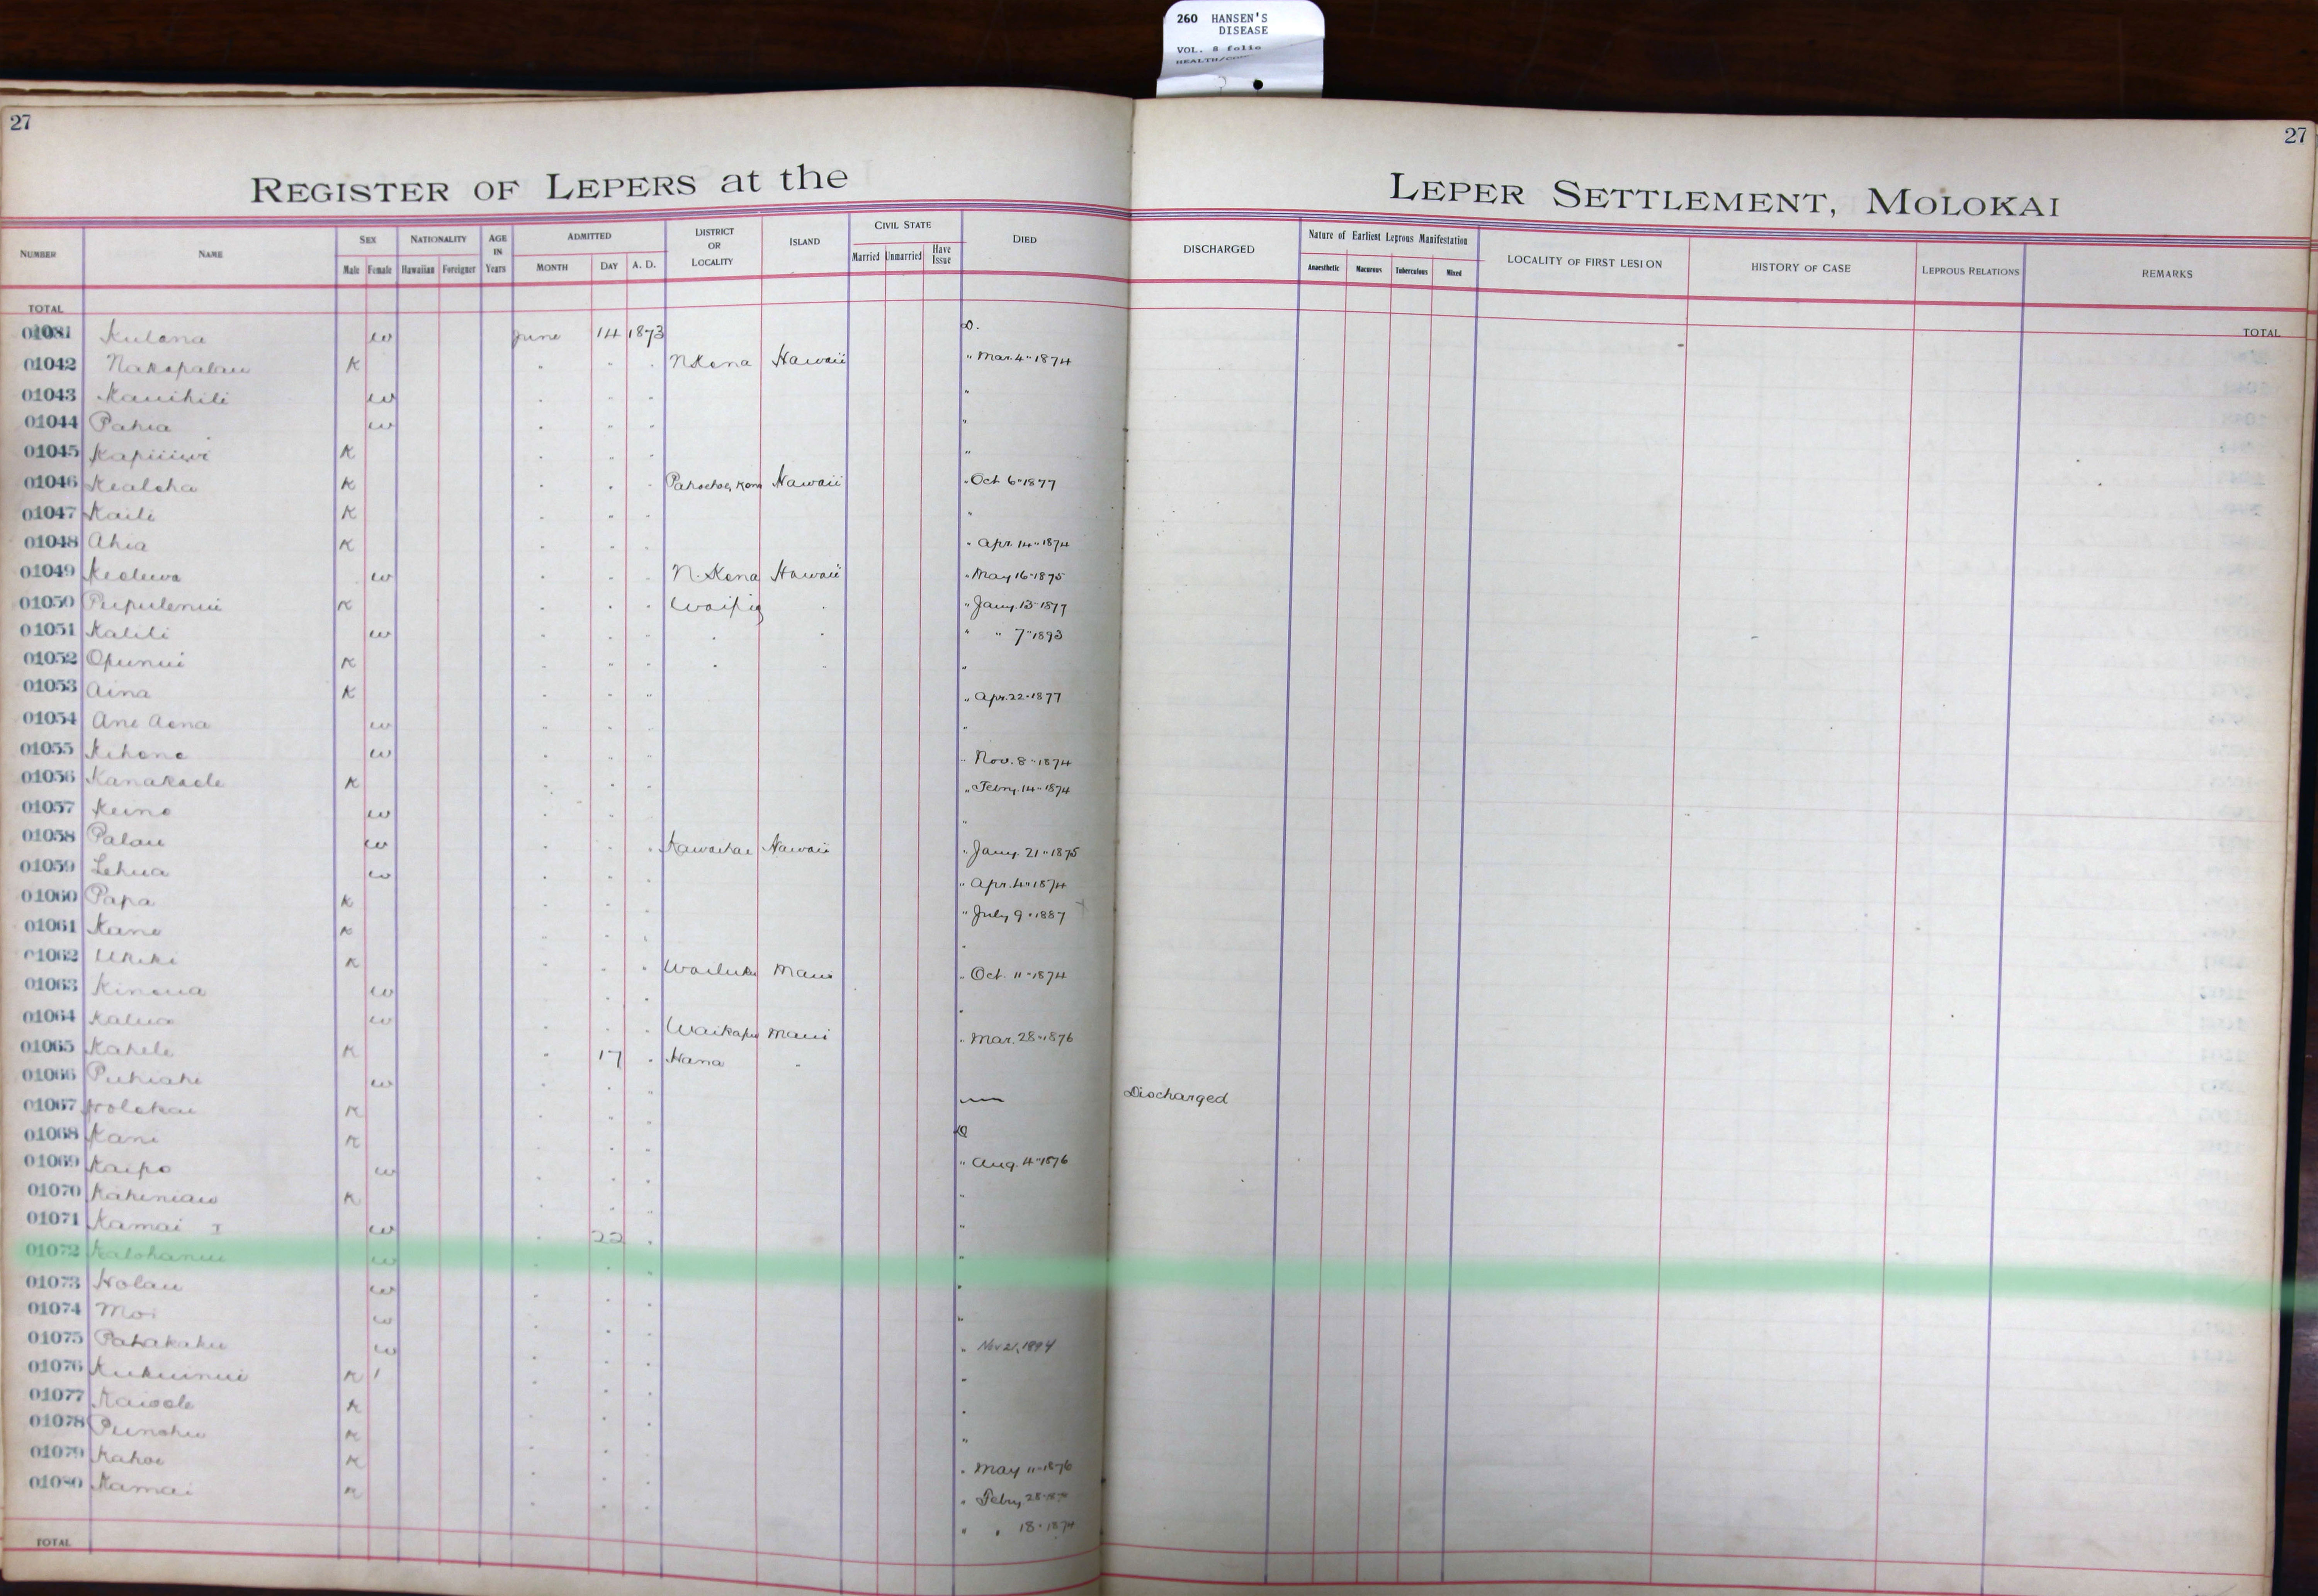 260 HANSEN'S
DISEASE
VOL. 8 folio
27
27
REGISTER OF LEPERS at the LEPER SETTLEMENT, MOLOKAI
NUMBER NAME SEX Male Female NATIONALITY Hawaiian Foreigner AGE IN Years ADMITTED MONTH DAY A. D. DISTRICT OR LOCALITY ISLAND CIVIL STATE Married Unmarried Have Issue DIED DISCHARGED Nature of Earliest Leprous Manifestation Anaesthetic Macurous Tuberculous Mixed LOCALITY OF FIRST LESION HISTORY OF CASE LEPROUS RELATIONS REMARKS
TOTAL TOTAL
Kulana w June 14 1873 D.
01042 Nakapalau K " " " N Kona Hawaii " Mar. 4" 1874
01043 Kauihili w " " " "
01044 Pahia w " " " "
01045 K " " " "
01046 Kealoha K " " " Pahoehoe, Kona Hawaii " Oct 6" 1877
01047 Kaili K " " " "
01048 Ahia K " " " " Apr. 14" 1874
01049 w " " " N. Kona Hawaii " May 16" 1875
01050 Pupulenui K " " " Waipio " " Jany. 13" 1877
01051 Kalili w " " " " " " " 7" 1893
01052 Opunui K " " " " " "
01053 Aina K " " " " Apr. 22" 1877
01054 Ane Aona w " " " "
01055 Kihene w " " " " Nov. 8" 1874
01056 Kanakaole K " " " " Febry. 14" 1874
01057 Keino w " " " "
01058 Palau w " " " Kawaihae Hawaii " Jany. 21" 1875
01059 Lehua w " " " " Apr. 4" 1874
01060 Papa K " " " " July 9" 1887
01061 Kane K " " " "
01062 Ukeke K " " " Wailuku Maui " Oct. 11" 1874
01063 Kinoua w " " " "
01064 Kalua w " " " Waikapu Maui " Mar. 28" 1876
01065 Kahele K " 17 " Hana "
01066 Puhiahi w " " " Discharged
01067 Holokai K " " " D
01068 Kani K " " " " Aug. 4" 1876
01069 Kaipo w " " " "
01070 Kaheniau K " " " "
01071 Kamai I w " 22 " "
01072 Kalohanui w " " " "
01073 Holau w " " " "
01074 Moi w " " " " Nov 21, 1894
01075 Pahakahu w " " " "
01076 Kukuinui K " " " "
01077 Kaiaole K " " " "
01078 Punohu K " " " " May 11" 1876
01079 Kahoe K " " " " Febry 28"
01080 Kamai K " " " " " 18" 1874
TOTAL